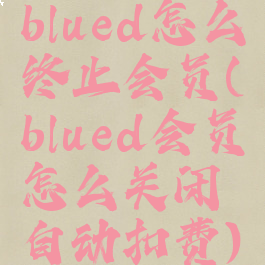 blued怎么
终止会员(
blued会员
怎么关闭
自动扣费)